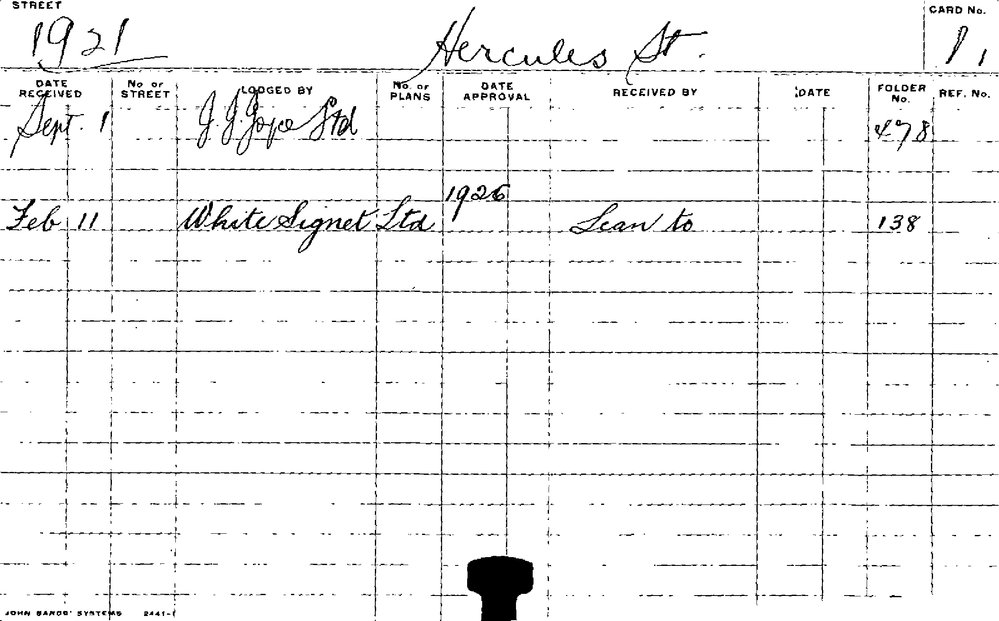 STREET
1921 Hercules St. CARD No. 1
DATE RECEIVED No OF STREET LODGED BY No. OF PLANS DATE APPROVAL RECEIVED BY DATE FOLDER No. REF. No.
Sept. 1 J. J. Ltd 478
1926
Feb 11 White Signet Ltd Lean to 138
JOHN SANDS' SYSTEMS 2441-1